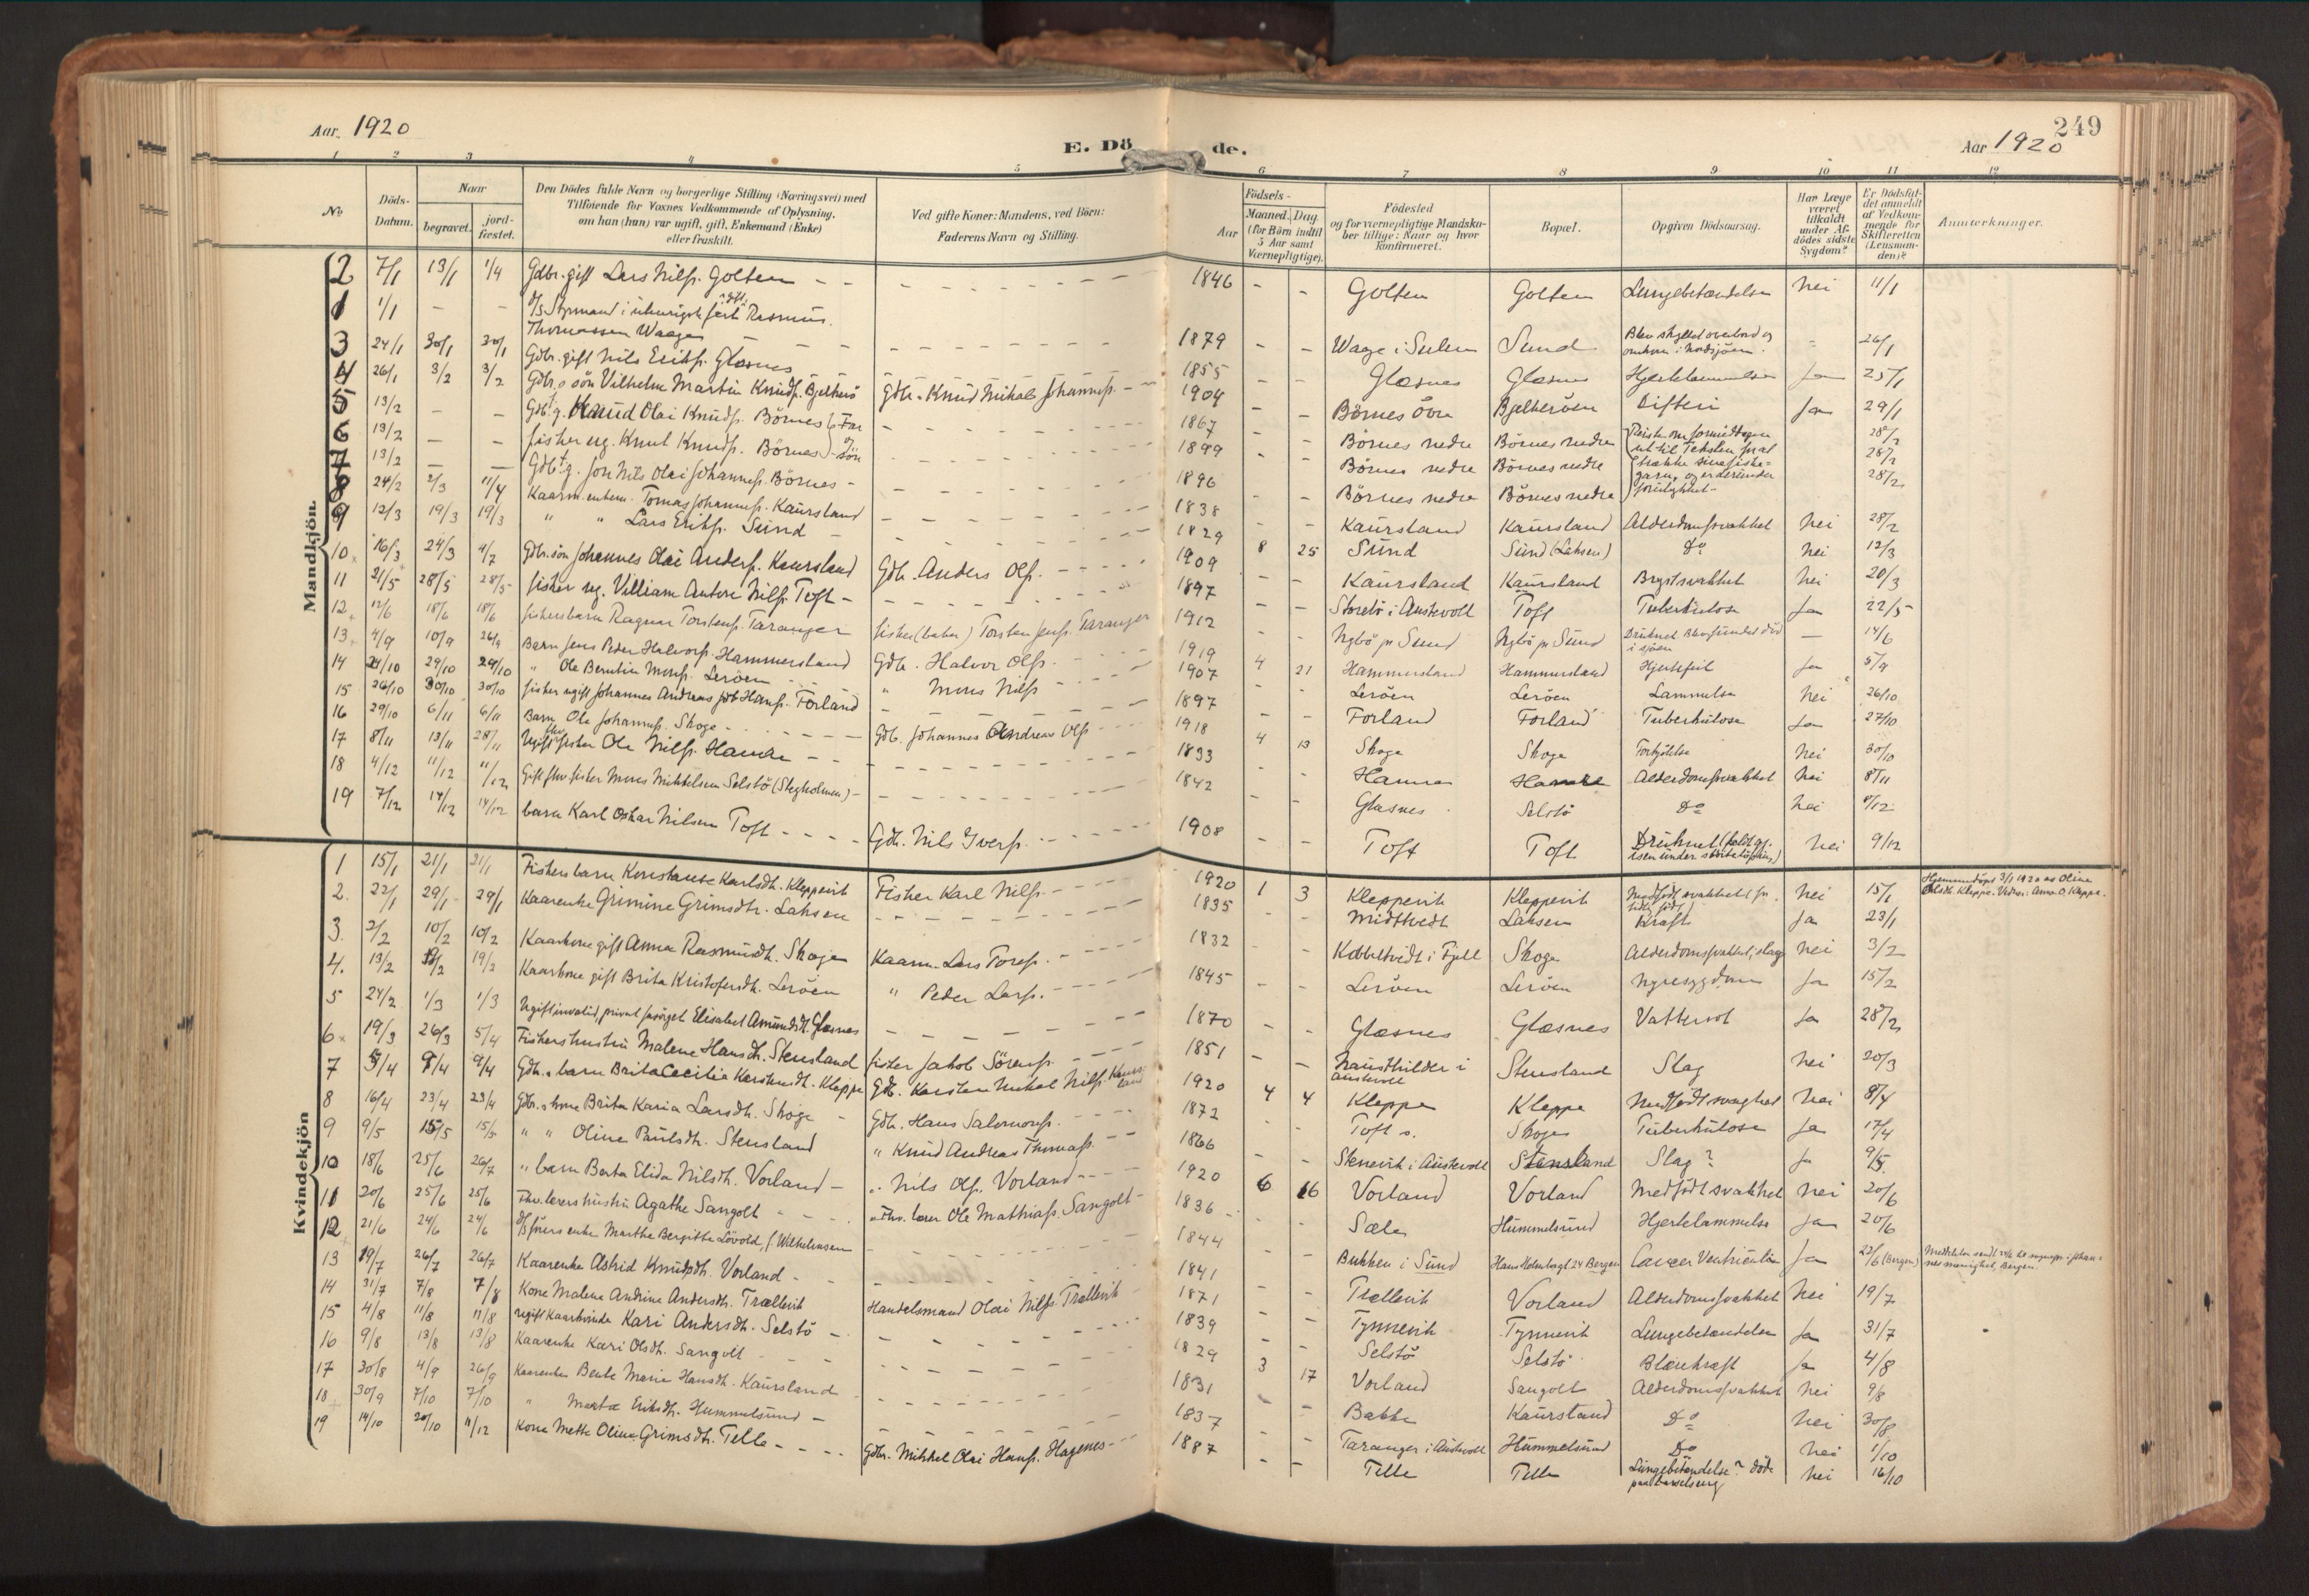 249
Aar 1920
E. Dö
de.
Aar 1920
1 2 3 4 5 6 7 8 9 10 11 12
No
Döds-Datum.
Naar
begravet.
jord-fæstet.
Den Dödes fulde Navn og borgerlige Stilling (Næringsvei) med
Tilföiende for Voxnes Vedkommende af Oplysning,
om han (hun) var ugift, gift, Enkemand (Enke)
eller fraskilt.
Ved gifte Koner: Mandens, ved Börn:
Faderens Navn og Stilling.
Födsels-
Aar
Maaned. Dag.
(for Börn indtil
5 Aar samt
Værnepligtige).
Födested
og for værnepligtige Mandska-
ber tillige: Naar og hvor
konfirmeret.
Bopæl.
Opgiven Dödsaarsag.
Har Læge
været
tilkaldt
under Af-
dödes sidste
Sygdom?
Er Dödsfal-
det anmeldt
af Vedkom-
mende for
Skifteretten
(Lensman-
den)?
Anmærkninger.
Mandkjön.
2 7/1 13/1 1/4 Gdbr. gift Lars Nilss. Golten - - 1846 - - Golten Golten Lungebetændelse Nei 11/1
1 1/1 - - Styrmand i Rasmus
Thomassen Waage 1879 - - Wage i Sulen Sund Blev skyllet overbord og
omkom i Nordsjöen. 26/1
3 24/1 30/1 30/1 Gdbr. gift Nils Erikss. Glæsnes 1855 - - Glæsnes Glæsnes Hjertelammelse Ja 25/1
4 26/1 3/2 3/2 Gdbr.s sön Vilhelm Martin Knudss. Bjelkerö Gdbr. Knud Mikal Johanness. 1904 - - Börnes övre Bjelkeröen Difteri Ja 29/1
5 13/2 - - Gdbr. g. Knud Olai Knudss. Börnes Far 1867 - - Börnes nedre Börnes nedre 28/2
6 13/2 - - fisker ug. Knut Knudss. Börnes sön 1899 - - Börnes nedre Börnes nedre 28/2
7 13/2 - - Gdbr. g. Jon Nils Olai Johanness. Börnes - 1896 - - Börnes nedre Börnes nedre 28/2
Reiste om formiddagen
ut til Teksten for at
trække sine fiske=
garn, og er derunder
forulykket-
8 24/2 2/3 11/4 Kaarm. enkem. Tomas Johanness. Kaursland 1838 - - Kaursland Kaursland Alderdomssvakhet Nei 28/2
9 12/3 19/3 19/3 " " Lars Erikss. Sund 1829 Sund Sund (Lahsen) Do Nei 12/3
10 16/3 24/3 4/7 Gdbr. sön Johannes Olai Anderss. Kaursland Gdbr. Anders Olss. 1909 8 25 Kaursland Kaursland Brystsvakhet Nei 20/3
11 21/5 28/5 28/5 fisker ug. Villiam Anton Nilss. Toft - 1897 - - Storebö i Austevoll Toft Tuberkulose Ja 22/5
12 12/6 18/6 18/6 fiskersbarn Ragnar Torstenss. Taranger fisker (baker) Torsten Jenss. Taranger 1912 Nybö pr Sund Nybö pr Sund Druknet. Blev fundet död
i sjöen — 14/6
13 4/9 10/9 26/9 Barn Jens Peder Halvorss. Hammersland Gdbr. Halvor Olss. 1919 4 21 Hammersland Hammersland Hjertefeil Ja 5/9
14 24/10 29/10 29/10 " Ole Berntin Monss. Leröen " Mons Nilss 1907 - - Leröen Leröen Lammelse Nei 26/10
15 26/10 30/10 30/10 fisker ugift Johannes Andreas Hanss. Forland 1897 - - Forland Forland Tuberkulose Ja 27/10
16 29/10 6/11 6/11 Barn Ole Johanness. Skoge Gdb. Johannes Andreas Olss 1918 4 13 Skoge Skoge Forkjölelse Nei 30/10
17 8/11 13/11 28/11 Ugift fhv fisker Ole Nilss. Hamre 1833 - - Hamre Hamre Alderdomssvakhet Nei 8/11
18 4/12 11/12 11/12 Gift fhv fisker Mons Mikkelsen Selstö (Stegholmen) - 1842 - - Glæsnes Selstö Do Nei
19 7/12 14/12 14/12 barn Karl Oskar Nilsen Toft - Gdbr. Nils Iverss. 1908 - - Toft Toft Druknet (faldt gj.
isen under sköitelöpning) Nei 9/12
Kvindekjön
1 15/1 21/1 21/1 Fiskersbarn Konstanse Karlsdtr. Kleppevik Fisker Karl Nilss. 1920 1 3 Kleppevik Kleppevik Medfödt svakhet (for
tidlig födt) Nei 15/1 Hjemmedöpt 3/1 1920 av Oline
Olsdtr. Kleppe. Vidner: Anna O. Kleppe.
2. 22/1 29/1 29/1 Kaarenke Grimine Grimsdtr. Lahsen 1835 - - Midttvedt Lahsen Kræft Ja 23/1
3. 2/2 10/2 10/2 Kaarkone gift Anna Rasmusdtr. Skoge Kaarm. Lars Toress. 1832 - - Kobbeltvedt i Fjell Skoge Alderdomssvakhet, slag Nei 3/2
4. 13/2 19/2 Kaarkone gift Brita Kristofersdtr. Leröen " Peder Larss. 1845 - - Leröen Leröen Nyresygdom Ja 15/2
5 24/2 1/3 1/3 Ugift invalid, privat forsörget Elisabet Amundsdtr. Glæsnes 1870 - - Glæsnes Glæsnes Vattersot Ja 28/2
6 19/3 26/3 5/4 Fiskers hustru Malene Hansdtr. Stensland fisker Jakob Sörenss. 1851 - - Nausthilder i
Austevoll Stensland Slag Nei 20/3
7 5/4 9/4 9/4 Gdbr.s barn Brita Cecilie Karstensdtr. Kleppe Gdb. Karsten Mikal Nilss. Kaurs-
land 1920 4 4 Kleppe Kleppe Medfödt svaghet Nei 8/4
8 16/4 23/4 23/4 Gdbr.s kone Brita Karia Larsdtr. Skoge - Gdb. Hans Salomonss. 1872 - - Toft s. Skoge Tuberkulose Ja 17/4
9 9/5 15/5 15/5 " " Oline Paulsdtr. Stensland " Knud Andreas Thomass. 1866 - - Stenevik i Austevoll Stensland Slag? Ja 9/5
10 18/6 25/6 26/7 " barn Berta Elida Nilsdtr. Vorland - " Nils Olss. Vorland 1920 6 16 Vorland Vorland Medfödt svakhet Nei 20/6
11 20/6 25/6 25/6 Fhv. lærers hustru Agathe Sangolt Fhv. lærer Ole Mathiass. Sangolt 1836 - - Sæle Hummelsund Hjertelammelse Ja 20/6
12 21/6 24/6 24/6 enke Marthe Bergitte Lövold, f. Wilhelmsen 1844 Bukken i Sund 24 Bergen Cancer Ventriculi Ja 22/6 (Bergen)
13 19/7 26/7 26/7 Kaarenke Astrid Knudsdtr. Vorland 1841 - - Trællevik Vorland Alderdomssvakhet Nei 19/7
14 31/7 7/8 7/8 Kone Malene Andrine Andersdtr. Trællevik Handelsmand Olai Nilss. Trællevik 1871 - - Tynnevik Tynnevik Lungebetændelse Ja 31/7
15 4/8 11/8 11/8 ugift Kaarkvinde Kari Andersdtr. Selstö - 1839 - - Selstö Selstö Blærekræft Ja 4/8
16 9/8 13/8 13/8 Kaarenke Kari Olsdtr. Sangolt 1829 3 17 Vorland Sangolt Alderdomssvakhet Nei 9/8
17 30/8 4/9 26/9 Kaarenke Berte Marie Hansdtr. Kaursland 1831 - - Bakke Kaursland Do Nei 30/8
18 30/9 7/10 7/10 " Marta Eriksdtr. Hummelsund - 1837 - - Taranger i Austevoll Hummelsund Do Nei 1/10
19 14/10 20/10 11/12 Kone Mette Olina Grimsdtr. Telle Gdbr. Mikkel Olai Hanss. Hagenes 1887 - - Telle Telle Lungebetændelse? döde
paa barselseng Nei 16/10